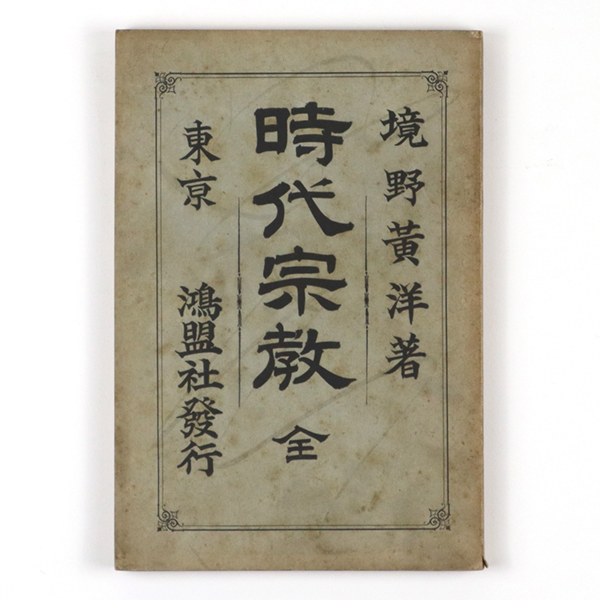 境野黃洋著
時代宗教 全
東京 鴻盟社發行